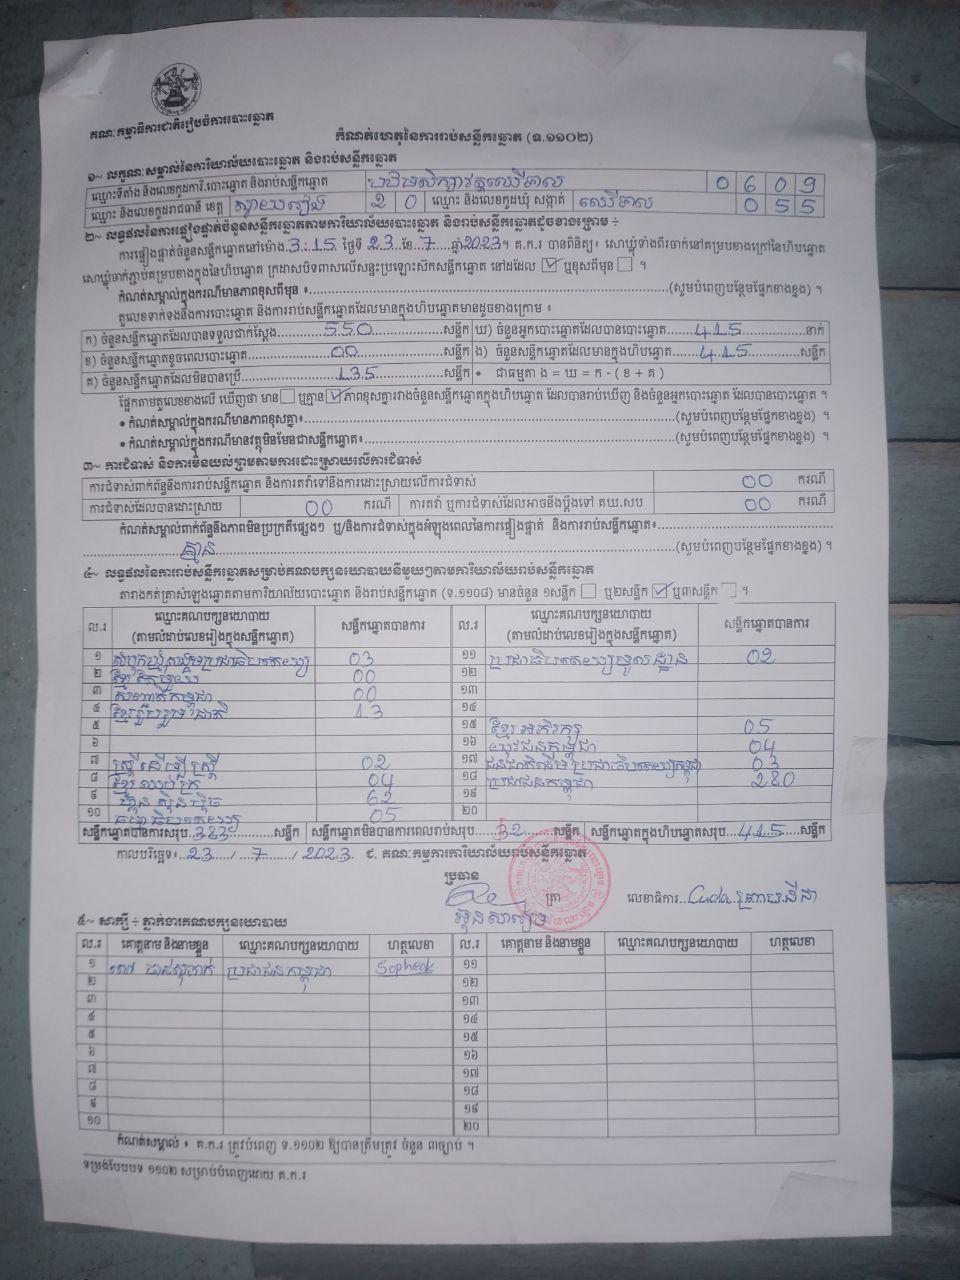 គណៈកម្មាធិការជាតិរៀបចំការបោះឆ្នោត
កំណត់ហេតុនៃការរាប់សន្លឹកឆ្នោត (ទ.១១០២)
១~ លក្ខណៈសម្គាល់នៃការិយាល័យបោះឆ្នោត និងរាប់សន្លឹកឆ្នោត
ឈ្មោះទីតាំង និងលេខកូដការិ.បោះឆ្នោត និងរាប់សន្លឹកឆ្នោត 0609
ឈ្មោះ និងលេខកូដរាជធានី ខេត្ត ស្វាយរៀង 20 ឈ្មោះ និងលេខកូដឃុំ សង្កាត់ ឈើទាល 055
២~ លទ្ធផលនៃការផ្ទៀងផ្ទាត់ចំនួនសន្លឹកឆ្នោតតាមការិយាល័យបោះឆ្នោត និងរាប់សន្លឹកឆ្នោតដូចខាងក្រោម ÷
ការផ្ទៀងផ្ទាត់ចំនួនសន្លឹកឆ្នោតនៅម៉ោង 3:15 ថ្ងៃទី 23 ខែ 7 ឆ្នាំ 2023។ គ.ក.រ បានពិនិត្យ៖ សោឃ្មុំទាំងពីរចាក់នៅគម្របខាងក្រៅនៃហិបឆ្នោត
សោឃ្មុំចាក់ភ្ជាប់គម្របខាងក្នុងនៃហិបឆ្នោត ក្រដាសបិទពាសលើសន្ទះប្រឡោះស៊កសន្លឹកឆ្នោត នៅដដែល ☑ ឬខុសពីមុន ☐ ។
កំណត់សម្គាល់ក្នុងករណីមានភាពខុសពីមុន ៖ (សូមបំពេញបន្ថែមផ្នែកខាងខ្នង) ។
តួលេខទាក់ទងនឹងការបោះឆ្នោត និងការរាប់សន្លឹកឆ្នោតដែលមានក្នុងហិបឆ្នោតមានដូចខាងក្រោម ៖
ក) ចំនួនសន្លឹកឆ្នោតដែលបានទទួលជាក់ស្តែង 550 សន្លឹក ឃ) ចំនួនអ្នកបោះឆ្នោតដែលបានបោះឆ្នោត 415 នាក់
ខ) ចំនួនសន្លឹកឆ្នោតខូចពេលបោះឆ្នោត 00 សន្លឹក ង) ចំនួនសន្លឹកឆ្នោតដែលមានក្នុងហិបឆ្នោត 415 សន្លឹក
គ) ចំនួនសន្លឹកឆ្នោតដែលមិនបានប្រើ 135 សន្លឹក • ជាធម្មតា ង = ឃ = ក - ( ខ + គ )
ផ្អែកតាមតួលេខខាងលើ ឃើញថា មាន ☐ ឬគ្មាន ☑ ភាពខុសគ្នារវាងចំនួនសន្លឹកឆ្នោតក្នុងហិបឆ្នោត ដែលបានរាប់ឃើញ និងចំនួនអ្នកបោះឆ្នោត ដែលបានបោះឆ្នោត ។
• កំណត់សម្គាល់ក្នុងករណីមានភាពខុសគ្នា៖ (សូមបំពេញបន្ថែមផ្នែកខាងខ្នង) ។
• កំណត់សម្គាល់ក្នុងករណីមានវត្ថុមិនមែនជាសន្លឹកឆ្នោត៖ (សូមបំពេញបន្ថែមផ្នែកខាងខ្នង) ។
៣~ ការជំទាស់ និងការមិនយល់ព្រមតាមការដោះស្រាយលើការជំទាស់
ការជំទាស់ពាក់ព័ន្ធនឹងការរាប់សន្លឹកឆ្នោត និងការតវ៉ាទៅនឹងការដោះស្រាយលើការជំទាស់ 00 ករណី
ការជំទាស់ដែលបានដោះស្រាយ 00 ករណី ការតវ៉ា ឬការជំទាស់ដែលអាចនឹងប្តឹងទៅ គឃ.សប 00 ករណី
កំណត់សម្គាល់ពាក់ព័ន្ធនឹងភាពមិនប្រក្រតីផ្សេងៗ ឬ/និងការជំទាស់ក្នុងអំឡុងពេលនៃការផ្ទៀងផ្ទាត់ និងការរាប់សន្លឹកឆ្នោត៖
គ្មាន (សូមបំពេញបន្ថែមផ្នែកខាងខ្នង) ។
៤~ លទ្ធផលនៃការរាប់សន្លឹកឆ្នោតសម្រាប់គណបក្សនយោបាយនីមួយៗតាមការិយាល័យរាប់សន្លឹកឆ្នោត
តារាងកត់ត្រាសំឡេងឆ្នោតតាមការិយាល័យបោះឆ្នោត និងរាប់សន្លឹកឆ្នោត (ទ.១១០៨) មានចំនួន ១សន្លឹក ☐ ឬ២សន្លឹក ☑ ឬ៣សន្លឹក ☐ ។
ល.រ ឈ្មោះគណបក្សនយោបាយ (តាមលំដាប់លេខរៀងក្នុងសន្លឹកឆ្នោត) សន្លឹកឆ្នោតបានការ ល.រ ឈ្មោះគណបក្សនយោបាយ (តាមលំដាប់លេខរៀងក្នុងសន្លឹកឆ្នោត) សន្លឹកឆ្នោតបានការ
១ សំបុកឃ្មុំសង្គមប្រជាធិបតេយ្យ 03 ១១ ប្រជាធិបតេយ្យមូលដ្ឋាន 02
២ ខ្មែរតែមួយ 00 ១២
៣ សញ្ជាតិកម្ពុជា 00 ១៣
៤ ខ្មែររួបរួមជាតិ 13 ១៤
៥ ១៥ ខ្មែរអភិរក្ស 05
៦ ១៦ យុវជនកម្ពុជា 04
៧ ស្ត្រីដើម្បីស្ត្រី 02 ១៧ ជនជាតិដើមប្រជាធិបតេយ្យកម្ពុជា 03
៨ ខ្មែរឈប់ក្រ 04 ១៨ ប្រជាជនកម្ពុជា 280
៩ ហ៊្វុនស៊ិនប៉ិច 62 ១៩
១០ ធម្មាធិបតេយ្យ 05 ២០
សន្លឹកឆ្នោតបានការសរុប 383 សន្លឹក សន្លឹកឆ្នោតមិនបានការពេលរាប់សរុប 32 សន្លឹក សន្លឹកឆ្នោតក្នុងហិបឆ្នោតសរុប 415 សន្លឹក
កាលបរិច្ឆេទ៖ 23 / 7 / 2023 ជ. គណៈកម្មការការិយាល័យរាប់សន្លឹកឆ្នោត
ប្រធាន
ត្រា លេខាធិការ
៥~ សាក្សី ÷ ភ្នាក់ងារគណបក្សនយោបាយ
ល.រ គោត្តនាម និងនាមខ្លួន ឈ្មោះគណបក្សនយោបាយ ហត្ថលេខា ល.រ គោត្តនាម និងនាមខ្លួន ឈ្មោះគណបក្សនយោបាយ ហត្ថលេខា
១ ប្រជាជនកម្ពុជា Sopheak ១១
២ ១២
៣ ១៣
៤ ១៤
៥ ១៥
៦ ១៦
៧ ១៧
៨ ១៨
៩ ១៩
១០ ២០
កំណត់សម្គាល់ ៖ គ.ក.រ ត្រូវបំពេញ ទ.១១០២ ឱ្យបានត្រឹមត្រូវ ចំនួន ៣ច្បាប់ ។
ទម្រង់បែបបទ ១១០២ សម្រាប់បំពេញដោយ គ.ក.រ